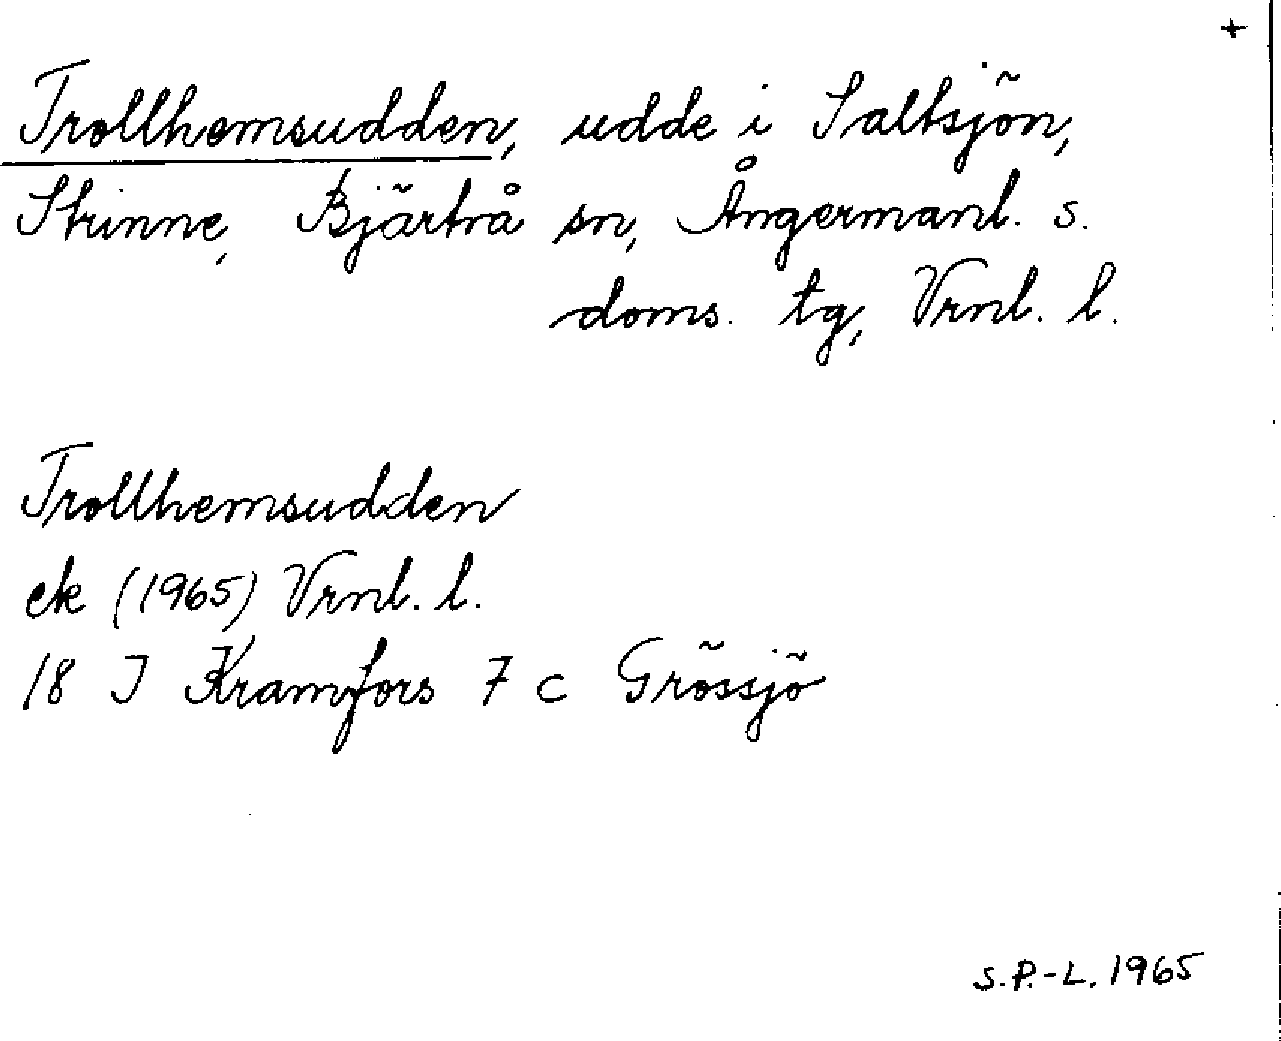 +
Trollhemsudden, udde i Saltsjön,
Strinne, Bjärtrå sn, Ångermanl. s.
doms. tg, Vrnl. l.
Trollhemsudden
ek (1965) Vrnl. l.
18 I Kramfors 7 c Grössjö
S.P.-L. 1965